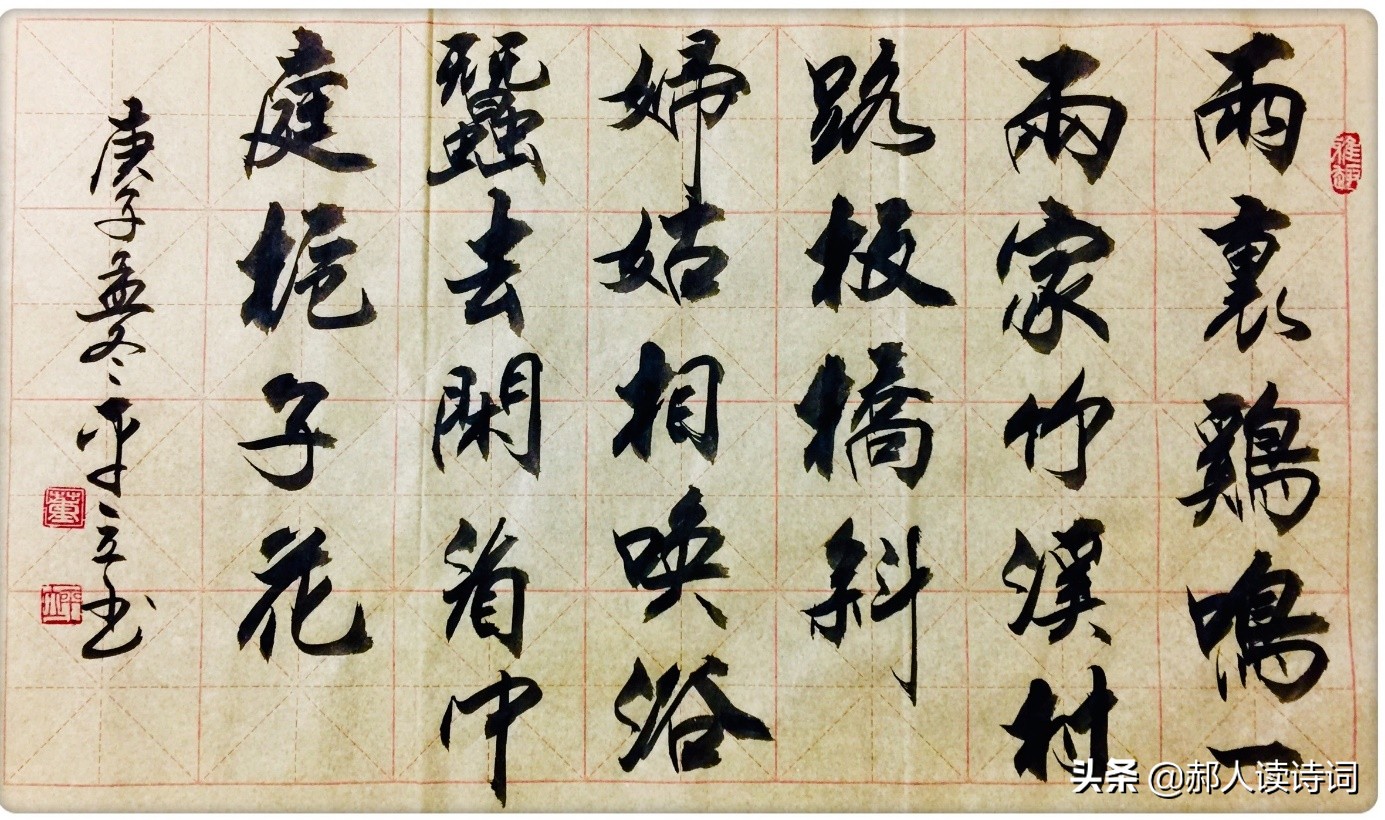 雨裏鷄鳴一
兩家竹溪村
路板橋斜
婦姑相喚浴
蠶去閑看中
庭栀子花
庚子孟冬平立书
董
头条 @郝人读诗词